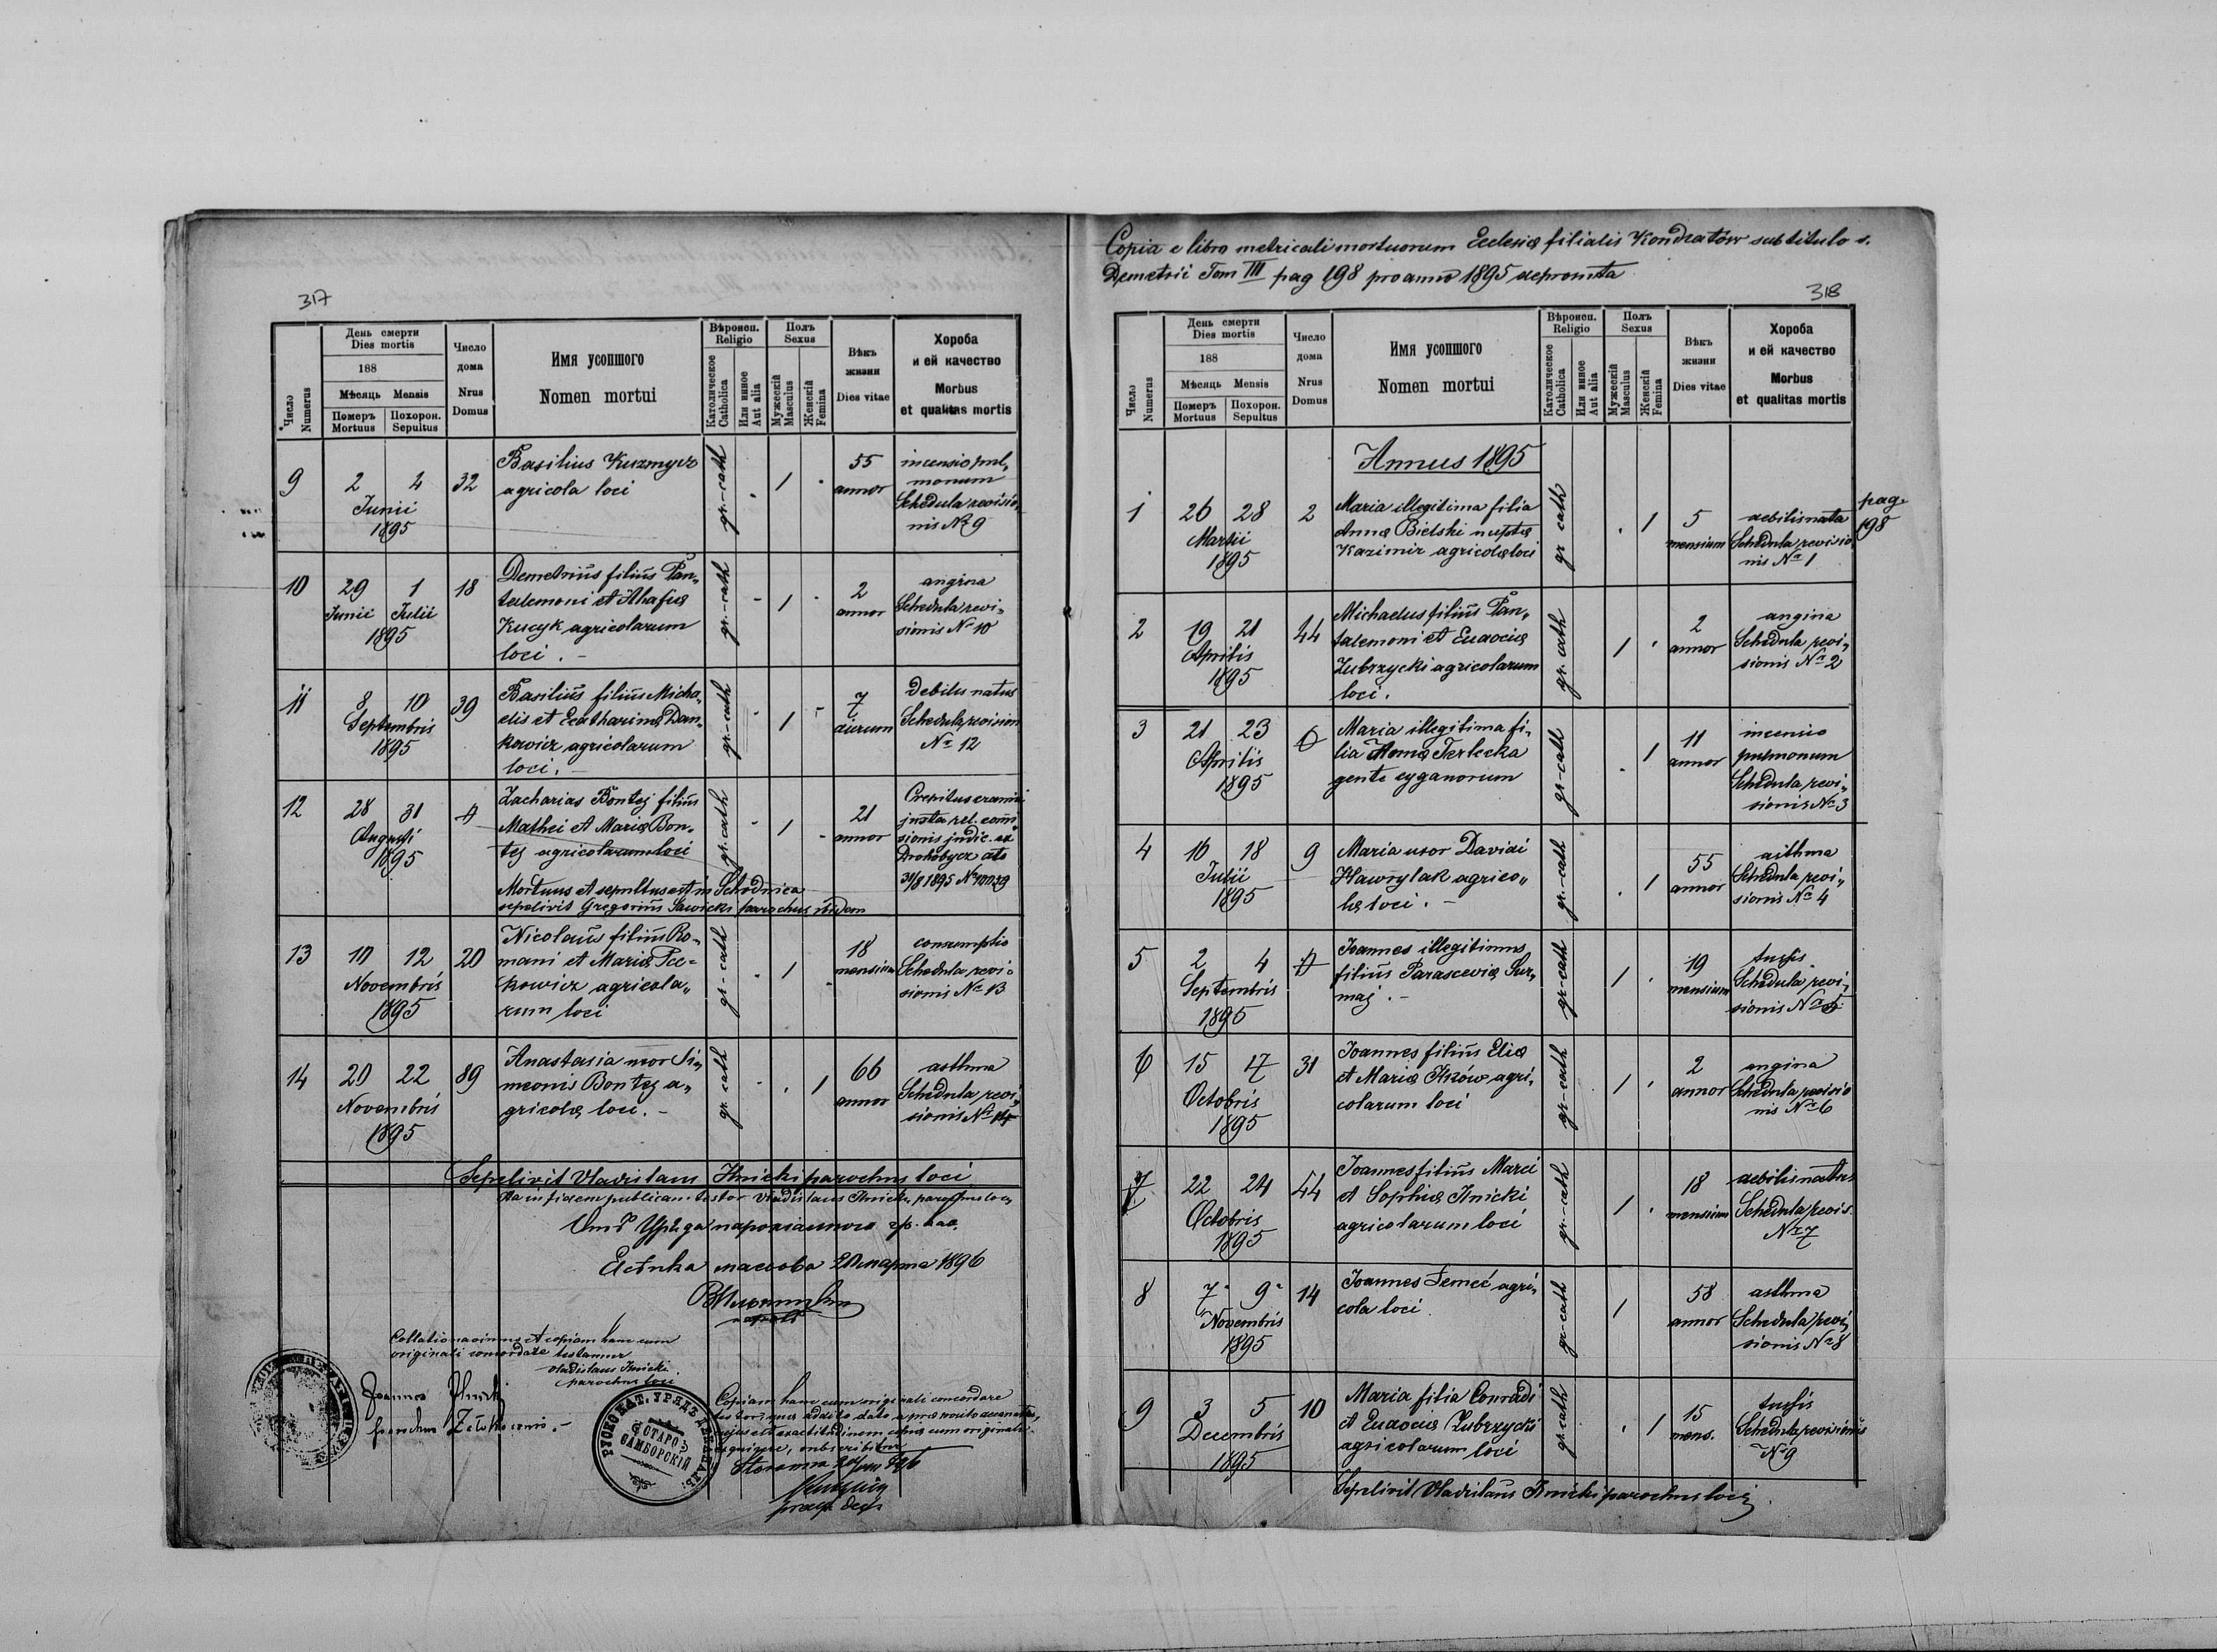 317
День смерти
Dies mortis
188
Мѣсяць Mensis
Померъ Mortuus
Похорон. Sepultus
Число Numerus
Число дома
Nrus Domus
Имя усопшого
Nomen mortui
Вѣроисп.
Religio
Католическое Catholica
Или иное Aut alia
Полъ
Sexus
Мужескій Masculus
Женскій Femina
Вѣкъ жизни
Dies vitae
Хороба
и ей качество
Morbus
et qualitas mortis
9
2 4
Junii
1895
32
Basilius Kuzmycz
agricola loci
gr.-cath
1
55
annor
incensio pul„
monum
Schedula revisio„
nis Nr 9
10
29 1
Junii Julii
1895
18
Demetriūs filiūs Pan„
talemoni et Ahafiæ
Kucyk agricolarum
loci . –
gr.-cath
1
2
annor
angina
Schedula revi„
sionis Nr 10
11
8 10
Septembris
1895
39
Basiliūs filiūs Micha„
elis et Ecatharinæ Dan„
kowicz agricolarum
loci. –
gr.-cath
1
7
dierum
Debilis natus
Schedula revision
Nr 12
12
28 31
Augusti
1895
Zacharias Bontej filiūs
Mathei et Mariæ Bon„
tej agricolarum loci
Mortuus et sepultus est in Schodnica
sepelivit Gregoriūs Sawicki parochus ibidem
gr.cath
1
21
annor
Crepitus cranii
justa rel. comi
sionis judic. ex
Drohobycz dto
31/8 1895
13
10 12
Novembris
1895
20
Nicolaūs filiūs Ro„
mani et Mariæ Pec„
kowicz agricola„
rum loci
gr-cath
1
18
mensium
consumptio
Schedula revi„
sionis Nr 13
14
20 22
Novembris
1895
89
Anastasia uxor Si„
meonis Bontej a„
gricolæ loci. –
gr.-cath
1
66
annor
asthma
Schedula revi„
sionis Nr 14
Sepelivit Vladislaus Ilnicki parochus loci
Ita in fidem publicam testor Vladislaus Ilnicki parochus loci
Отъ Уряда парохіального гр. кат.
марта 1896
Collationavimus et copiam hanc cum
originali concordare testamur
Vladislaus Ilnicki
parochus loci
Joannes Ilnicki
parochus
РУСКО КАТ. УРЯДЪ ДЕКАНАЛ.
СТАРО
САМБОРСКІЙ
Copiam hanc cum originali concordare
Copia e libro metricali mortuorum Ecclesiæ filialis Kondratów sub titulo s.
Demetrii Tom III pag 198 pro anno 1895 depromta
318
День смерти
Dies mortis
188
Мѣсяць Mensis
Померъ Mortuus
Похорон. Sepultus
Число Numerus
Число дома
Nrus Domus
Имя усопшого
Nomen mortui
Вѣроисп.
Religio
Католическое Catholica
Или иное Aut alia
Полъ
Sexus
Мужескій Masculus
Женскій Femina
Вѣкъ жизни
Dies vitae
Хороба
и ей качество
Morbus
et qualitas mortis
Annus 1895
pag.
198
1
26 28
Martii
1895
2
Maria illegitima filia
Annæ Bielski nuptæ
Kazimir agricolæ loci
gr cath
1
5
mensium
debilis nata
Schedula revisio„
nis Nr 1
2
19 21
Aprilis
1895
44
Michaelus filiūs Pan„
talemoni et Eudociæ
Zubrzycki agricolarum
loci.
gr. cath
1
2
annor
angina
Schedula revi„
sionis Nr 2
3
21 23
Aprilis
1895
Maria illegitima fi„
lia Annæ Terlecka
gente cyganorum
gr-cath
1
11
annor
incensio
pulmonum
Schedula revi„
sionis Nr 3
4
16 18
Julii
1895
9
Maria uxor Davidi
Hawrylak agrico„
læ loci. –
gr.-cath
1
55
annor
asthma
Schedula revi„
sionis Nr 4
5
2 4
Septembris
1895
Joannes illegitimus
filiūs Parasceviæ Sur„
maj . –
gr-cath
1
19
mensium
tussis
Schedula revi„
sionis Nr 5
6
15 17
Octobris
1895
31
Joannes filiūs Eliæ
et Mariæ Ilków agri„
colarum loci
gr-cath
1
2
annor
angina
Schedula revisio
nis Nr 6
7
22 24
Octobris
1895
44
Joannes filiūs Marci
et Sophiæ Ilnicki
agricolarum loci
gr.-cath
1
18
mensium
debilis natus
Schedula revis.
Nr 7
8
7 9
Novembris
1895
14
Joannes Femeć agri„
cola loci.
gr-cath
1
58
annor
asthma
Schedula revi„
sionis Nr 8
9
3 5
Decembris
1895
10
Maria filia Conradi
et Eudociæ Zubrzycki
agricolarum loci
gr.cath
1
15
mens.
tussis
Schedula revisionis
Nr 9
Sepelivit Vladislaūs Ilnicki parochus loci